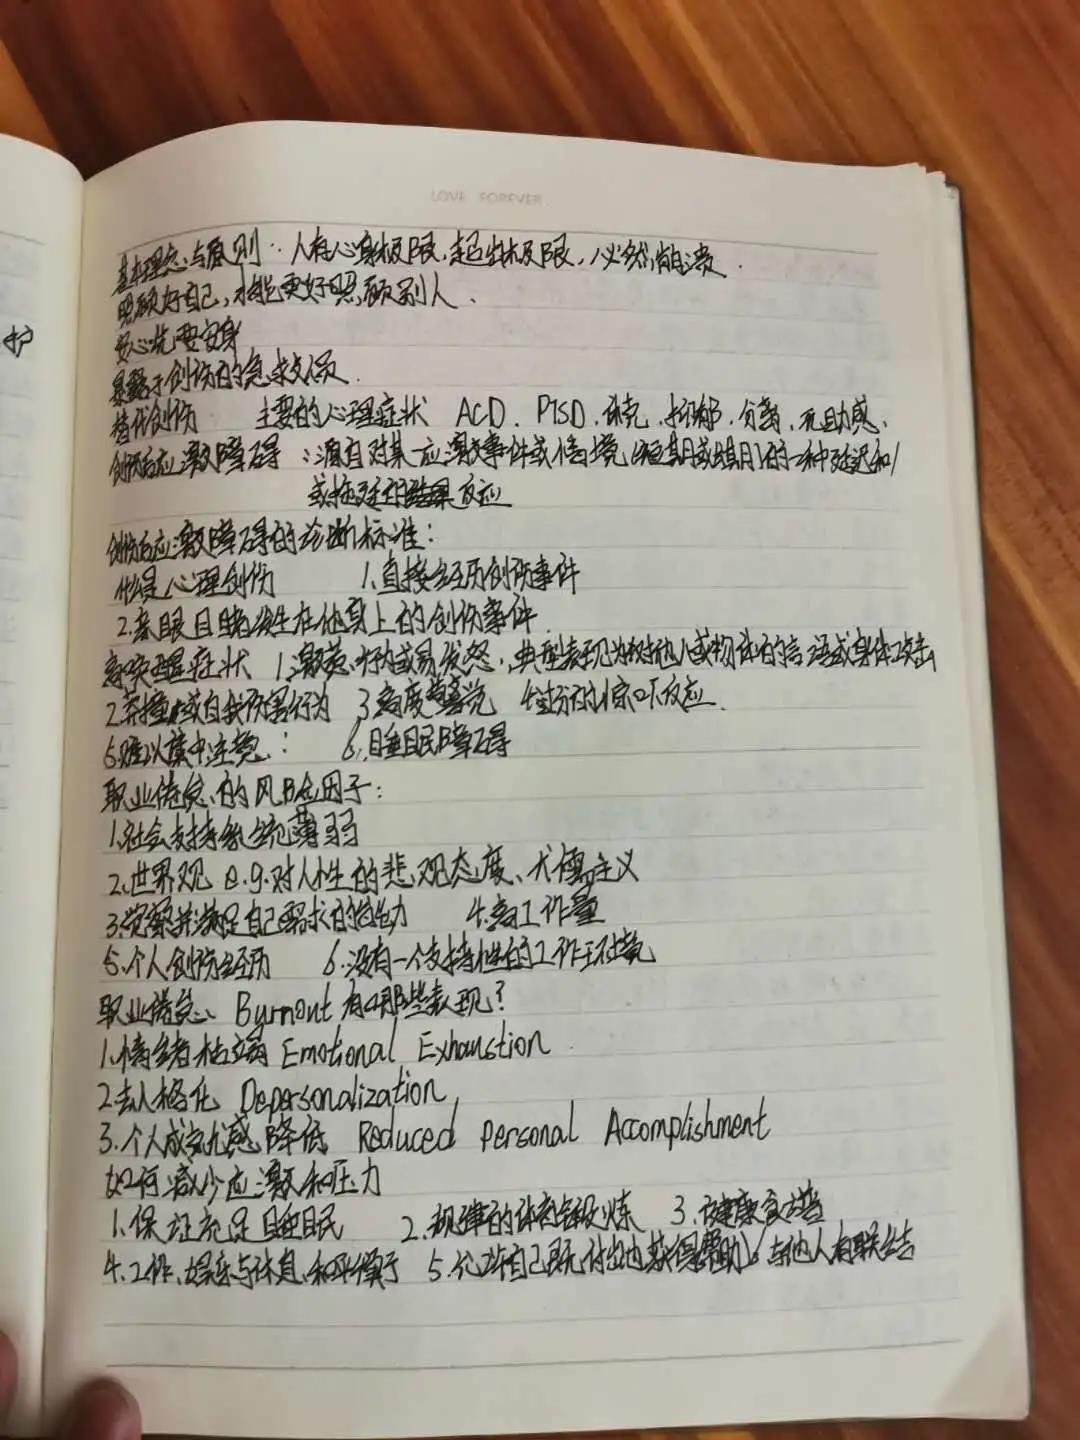 LOVE FOREVER
护
基本理念与原则：人有心身极限，超出极限，必然崩溃．
照顾好自己，才能更好照顾别人．
安心先要安身
暴露于创伤的急救人员．
替代创伤 主要的心理症状 ACD、PTSD、休克、抑郁、分离、无助感、
创伤后应激障碍：源自对某一应激事件或情境（短期或长期）的一种延迟和／
或拖延的反应
创伤后应激障碍的诊断标准：
什么是心理创伤 1.直接经历创伤事件
2.亲眼目睹发生在他身上的创伤事件．
高唤醒症状 1.激惹行为或易发怒，典型表现为对他人或物体的言语或身体攻击
2.莽撞或自我伤害行为 3.高度警觉 4.过分的惊吓反应．
5.难以集中注意： 6.睡眠障碍
职业倦怠的风险因子：
1.社会支持系统薄弱
2.世界观 e.g.对人性的悲观态度、犬儒主义
3.觉察并满足自己需求的能力 4.高工作量
5.个人创伤经历 6.没有一个支持性的工作环境
职业倦怠 Burnout 有哪些表现？
1.情绪枯竭 Emotional Exhaustion
2.去人格化 Depersonalization
3.个人成就感降低 Reduced Personal Accomplishment
如何减少应激和压力
1.保证充足睡眠 2.规律的体育锻炼 3.健康食谱
4.工作、娱乐与休息和平衡 5.允许自己既付出也获得帮助／与他人有联结